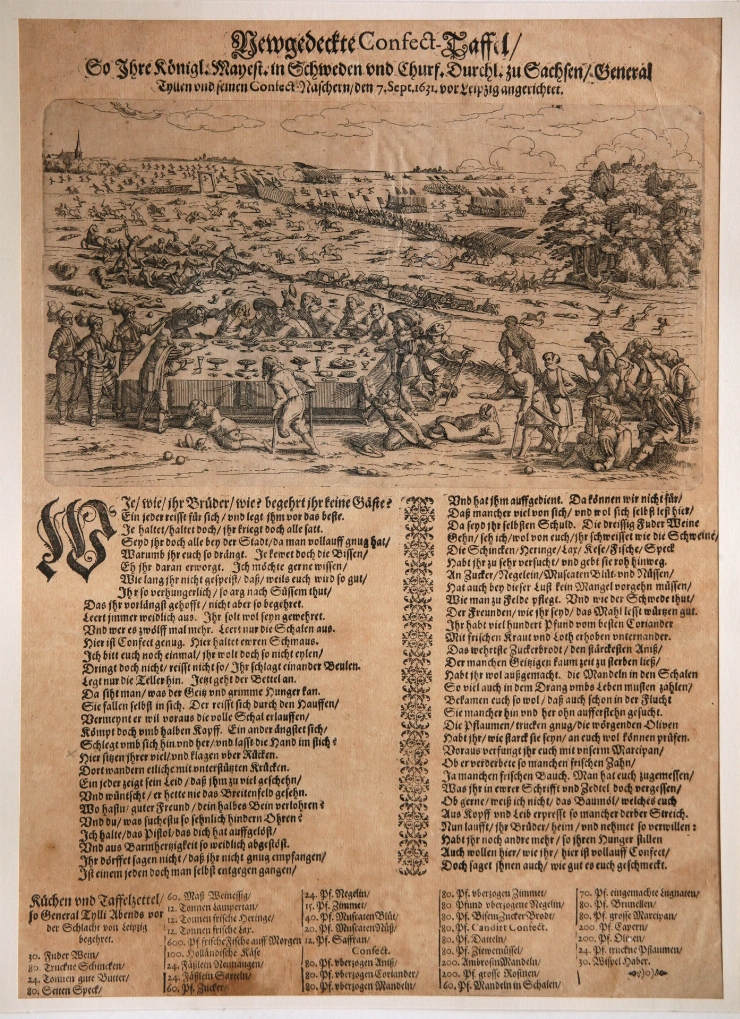 Newgedeckte Confect-Taffel/
So Ihre Königl. Mayest. in Schweden vnd Churf. Durchl. zu Sachsen/ General
Tyllen vnd seinen Confect-Naschern/ den 7. Sept. 1631. vor Leipzig angerichtet.
WIe/ wie/ jhr Brüder/ wie? begehrt jhr keine Gäste?
Ein jeder reisst für sich/ vnd legt jhm vor das beste.
Je haltet/ haltet doch/ jhr kriegt doch alle satt.
Seyd jhr doch alle bey der Stadt/ da man vollauff gnug hat/
Warumb jhr euch so drängt. Je kewet doch die Bissen/
Eh jhr daran erworgt. Ich möchte gerne wissen/
Wie lang jhr nicht gespeist/ daß/ weils euch wird so gut/
Ihr so verhungerlich/ so arg nach Süssem thut/
Das jhr vorlängst gehofft/ nicht aber so begehret.
Leert jmmer weidlich aus. Ihr solt wol seyn gewehret.
Vnd wer es zwölff mal mehr. Leert nur die Schalen aus.
Hier ist Confect genug. Hier haltet ewren Schmaus.
Ich bitt euch noch einmal/ jhr wolt doch so nicht eylen/
Dringt doch nicht/ reisst nicht so/ Ihr schlagt einander Beulen.
Legt nur die Teller hin. Jetzt geht der Bettel an.
Da siht man/ was der Geitz vnd grimme Hunger kan.
Sie fallen selbst in sich. Der reisst sich durch den Hauffen/
Vermeynt er wil voraus die volle Schal erlauffen/
Kömpt doch vmb halben Kopff. Ein ander ängstet sich/
Schlegt vmb sich hin vnd her/ vnd lasst die Hand im stich?
Hier sitzen jhrer viel/ vnd klagen vber Rücken.
Dort wandern etliche mit vnterstützten Krücken.
Ein jeder zeigt sein Leid/ daß jhm zu viel geschehn/
Vnd wünscht/ er hette nie das Breitenfeld gesehn.
Wo hastu/ guter Freund/ dein halbes Bein verlohren?
Vnd du/ was suchestu so sehnlich hindern Ohren?
Ich halte/ das Pistol/ das dich hat auffgelöst/
Vnd aus Barmhertzigkeit so weidlich abgestöst.
Ihr dörfft sagen nicht/ daß jhr nicht gnug empfangen/
Ist einem jeden doch man selbst entgegen gangen/
Vnd hat jhm auffgedient. Da können wir nicht für/
Daß mancher viel von sich/ vnd wol sich selbst lest hier/
Da seyd jhr selbsten Schuld. Die dreissig Fuder Weine
Gehn/ seh ich/ wol von euch/ jhr schweisset wie die Schweine/
Die Schincken/ Heringe/ Lax/ Kese/ Fische/ Speck
Habt jhr zu sehr versucht/ vnd gebt sie roh hinweg.
An Zucker/ Negelein/ Muscaten Blüt/ vnd Nüssen/
Hat auch bey dieser Lust kein Mangel vorgehn müssen/
Wie man zu Felde pflegt. Vnd wie der Schwede thut/
Der Freunden/ wie jhr seyd/ das Mahl lesst würtzen gut.
Ihr habt viel hundert Pfund vom besten Coriander
Mit frischen Kraut vnd Loth erhoben vnternander.
Das wehrtste Zuckerbrodt/ den stärckesten Aniß/
Der manchen Geitzigen kaum zeit zu sterben ließ/
Habt jhr wol außgemacht. die Mandeln in den Schalen
So viel auch in dem Drang vmbs Leben musten zahlen/
Bekamen euch so wol/ daß auch schon in der Flucht
Sie mancher hin vnd her ohn aufferstehn gesucht.
Die Pflaumen/ trucken gnug/ die wörgenden Oliven
Habt jhr/ wie starck sie seyn/ an euch wol können prüfen.
Voraus verfungt jhr euch mit vnserm Marcipan/
Ob er verderbete so manchen frischen Zahn/
Ja manchen frischen Bauch. Man hat euch zugemessen/
Was jhr in ewrer Schrifft vnd Zedtel doch vergessen/
Ob gerne/ weiß ich nicht/ das Baumöl/ welches euch
Aus Kopff vnd Leib erpresst so mancher derber Streich.
Nun laufft/ jhr Brüder/ heim/ vnd nehmet so verwillen:
Habt jhr noch andre mehr/ so jhren Hunger stillen
Auch wollen hier/ wie jhr/ hier ist vollauff Confect/
Doch saget jhnen auch/ wie gut es euch geschmeckt.
Küchen vnd Taffelzettel/
so General Tylli Abends vor
der Schlacht von Leipzig
begehret.
30. Fuder Wein/
80. Truckne Schincken/
24. Tonnen gute Butter/
80. Seiten Speck/
60. Maß Weinessig/
12. Tonnen Lampertan/
12. Tonnen frische Heringe/
12. Tonnen frische Lax.
600. Pf. frische Fische auff Morgen
100. Holländische Käse
24. Fäßlein Neunaugen/
24. Fäßlein Sarteln/
60. Pf. Zucker/
24. Pf. Negeln/
15. Pf. Zimmet/
40. Pf. Muscaten Blüt/
20. Pf. Muscaten Nüß/
12. Pf. Saffran/
Confect.
80. Pf. vberzogen Aniß/
80. Pf. vberzogen Coriander/
80. Pf. vberzogen Mandeln/
80. Pf. vberzogen Zimmet/
80. Pfund vberzogene Negelin/
80. Pf. Bisem Zucker Brodt/
80. Pf. Candirt Confect.
80. Pf. Datteln/
80. Pf. Ziewemüssel/
200. Ambrosin Mandeln/
200. Pf. grosse Rosinen/
60. Pf. Mandeln in Schalen/
70. Pf. eingemachte
80. Pf. Brunellen/
80. Pf. grosse Marcipan/
200. Pf. Capern/
200. Pf. Oliven/
24. Pf. truckne Pflaumen/
30. Wispel Haber.